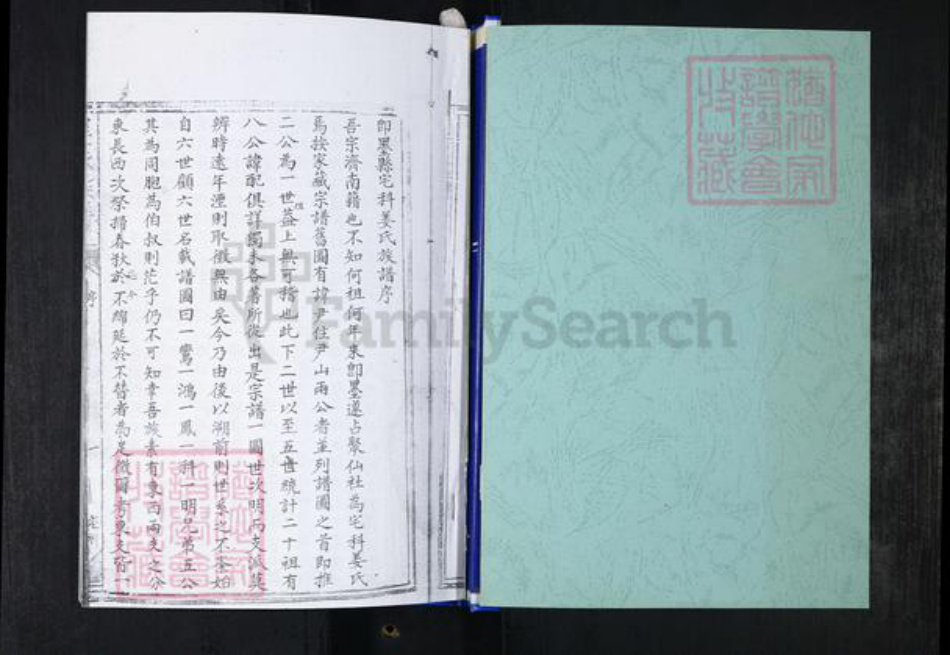 即墨縣宅科姜氏族譜序
吾宗濟南籍也不知何祖何年來即墨遂占聚仙社為宅科姜氏
焉按家藏宗譜舊圖有諱尹住尹山兩公者並列譜圖之首即推
二公為一世益上無可稽也此下二世以至五世統計二十祖有
八公諱配俱詳獨未各著所從出是宗譜一圖世次明而支派莫
辨時遠年湮則取徵無由矣今乃由後以溯前則世系之不紊始
自六世顧六世名載譜圖曰一鸞一鴻一鳳一科一明兄弟五公
其為同胞為伯叔則茫乎仍不可知幸吾族素有東西兩支之分
東長西次祭掃春秋於不綿延於不替者為足徵爾考東支皆一
序
一
FamilySearch
譜學會